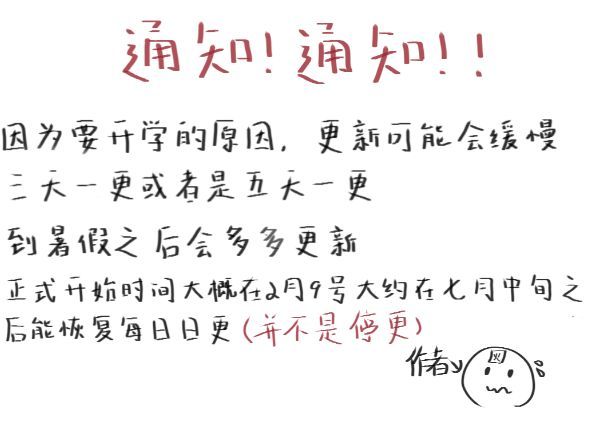 通知!通知!!
因为要开学的原因,更新可能会缓慢
三天一更或者是五天一更
到暑假之后会多多更新
正式开始时间大概在2月9号大约在七月中旬之
后能恢复每日日更(并不是停更)
作者
囡